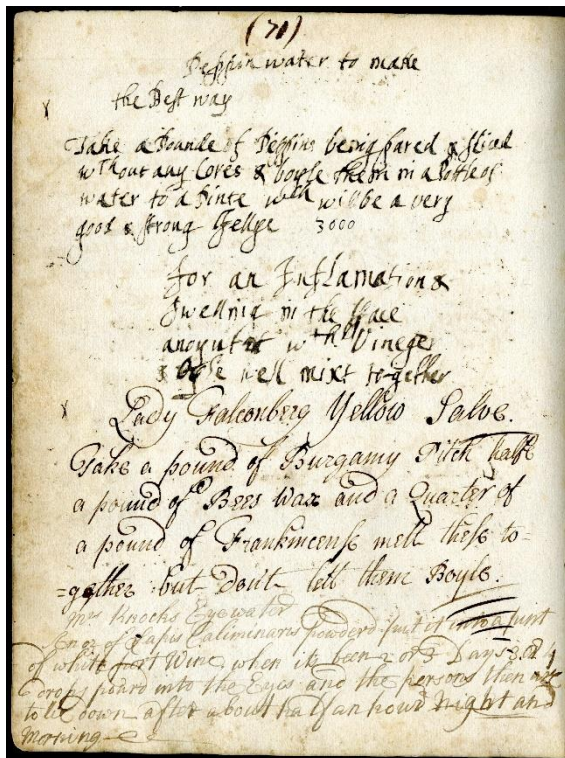 (71)
Peppin water to make
the Best way
Take a Pounde of Peppins being pared & sliced
wthout any Cores & boyle them in a Pottle of
water to a Pinte wch will be a very
good & strong Gellye 3000
for an Inflamation &
swelling in the face
anoynt it wth Vineger
& Oyle well mixt together
Lady Falconberg Yellow Salve.
Take a pound of Burgamy Pitch halfe
a pound of Bees Wax and a Quarter of
a pound of Frankincense melt these to=
=gether but don't lett them Boyle.
Mrs Knocks Eyewater
of Lapis Caliminaris powderd put it into a pint
of white port Wine when its been 2 or 3 Days 3 or 4
drops poard into the Eyes and the persons then
to lie down after about half an hour Night and
Morning